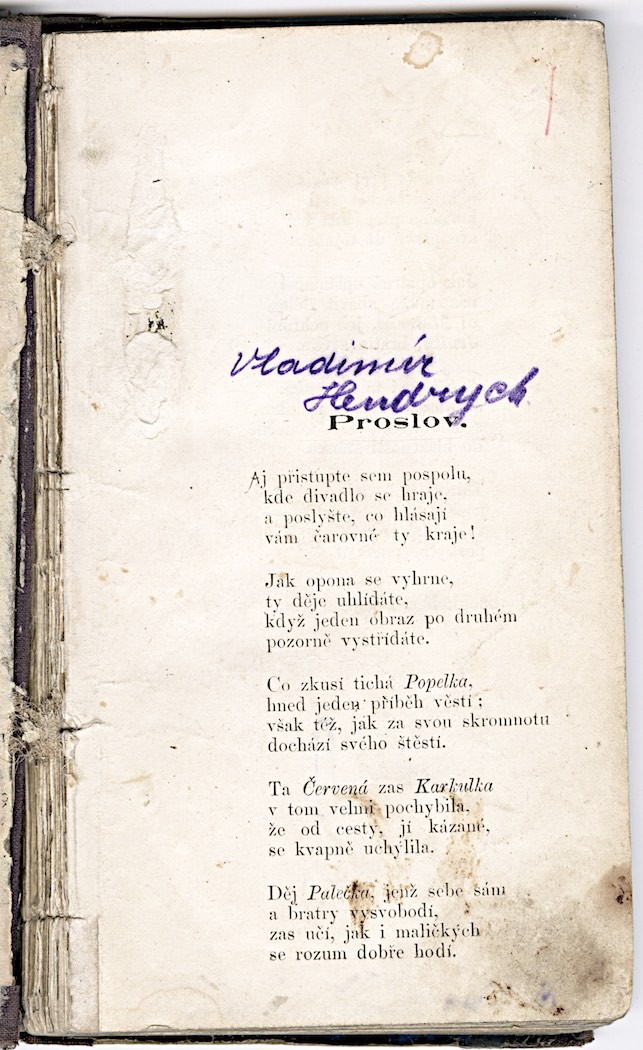 Vladimír
Hendrych
Proslov.
Aj přistupte sem pospolu,
kde divadlo se hraje,
a poslyšte, co hlásají
vám čarovné ty kraje!
Jak opona se vyhrne,
ty děje uhlídáte,
když jeden obraz po druhém
pozorně vystřídáte.
Co zkusí tichá Popelka,
hned jeden příběh věstí;
však též, jak za svou skromnotu
dochází svého štěstí.
Ta Červená zas Karkulka
v tom velmi pochybila,
že od cesty, jí kázané,
se kvapně uchýlila.
Děj Palečka, jenž sebe sám
a bratry vysvobodí,
zas učí, jak i maličkých
se rozum dobře hodí.